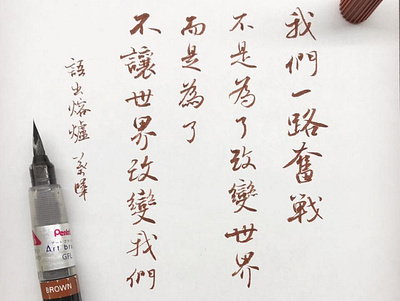 我們一路奮戰
不是為了改變世界
而是為了
不讓世界改變我們
語出熔爐
Pentel
Art brush
BROWN